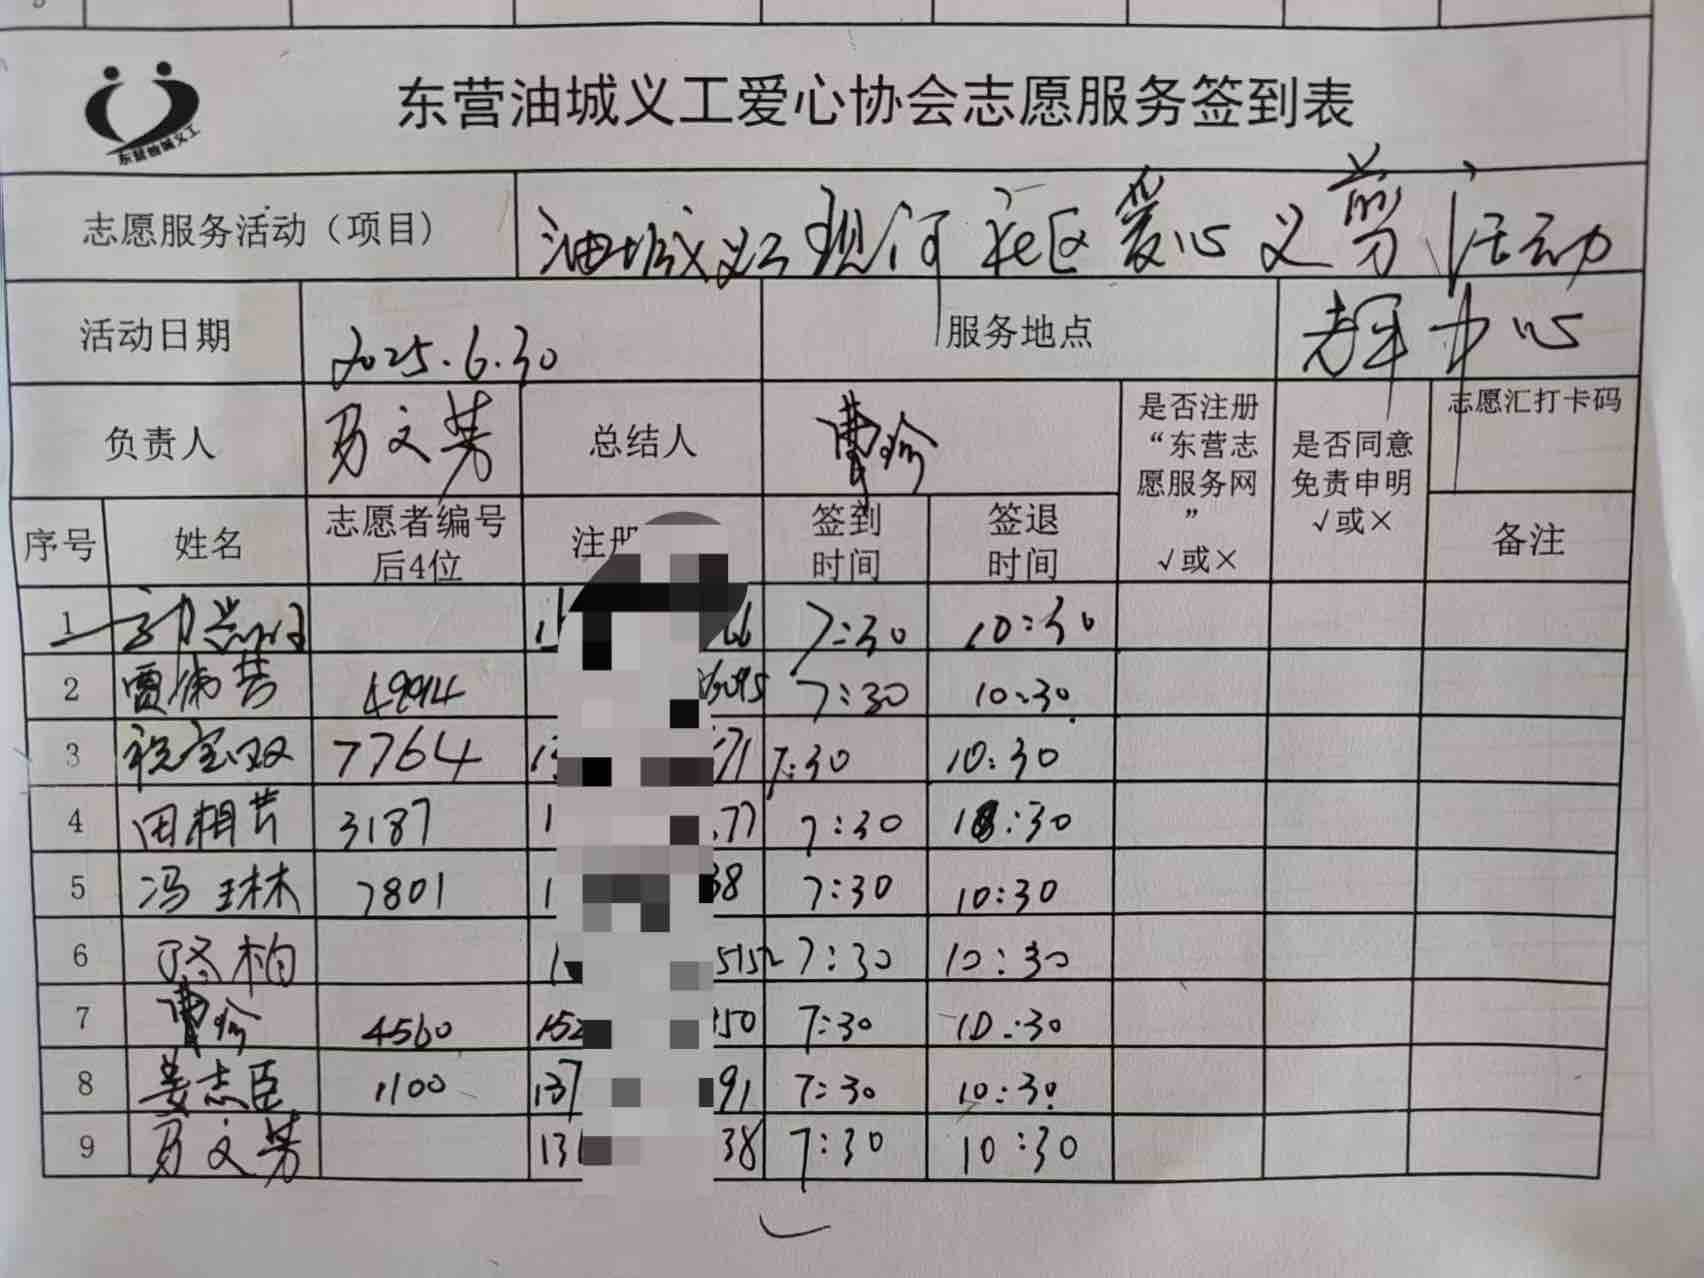 东营油城义工
东营油城义工爱心协会志愿服务签到表
志愿服务活动（项目） 油城义工现河社区爱心义剪活动
活动日期 2025.6.30 服务地点 老年中心
负责人 文芳 总结人 曹 是否注册“东营志愿服务网” √或× 是否同意免责申明 √或× 志愿汇打卡码
序号 姓名 志愿者编号后4位 注册 签到时间 签退时间 备注
1 66 7:30 10:30
2 贾 芳 7:30 10:30
3 祝宝双 7764 71 7:30 10:30
4 田相芹 3187 77 7:30 10:30
5 冯琳 7801 38 7:30 10:30
6 柏 5152 7:30 10:30
7 曹 4560 152 50 7:30 10:30
8 姜志臣 1100 137 91 7:30 10:30
9 文芳 13 38 7:30 10:30